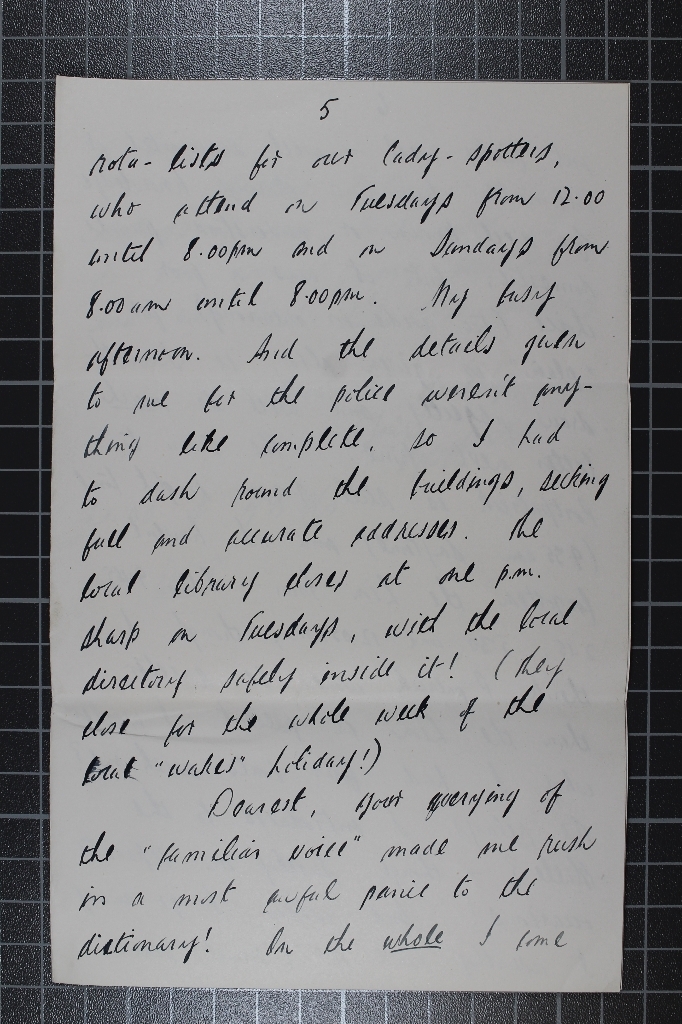 5
rota-lists for our lady-spotters,
who attend on Tuesdays from 12.00
until 8.00pm and on Sundays from
8.00am until 8.00pm. My busy
afternoon. And the details given
to me for the police weren't any-
thing like complete, so I had
to dash round the buildings, seeking
full and accurate addresses. The
local library closes at one p.m.
sharp on Tuesdays, with the local
directory safely inside it! (They
close for the whole week of the
local "wakes" holiday!)
Dearest, your querying of
the "familiar voice" made me rush
in a most awful panic to the
dictionary! On the whole I come